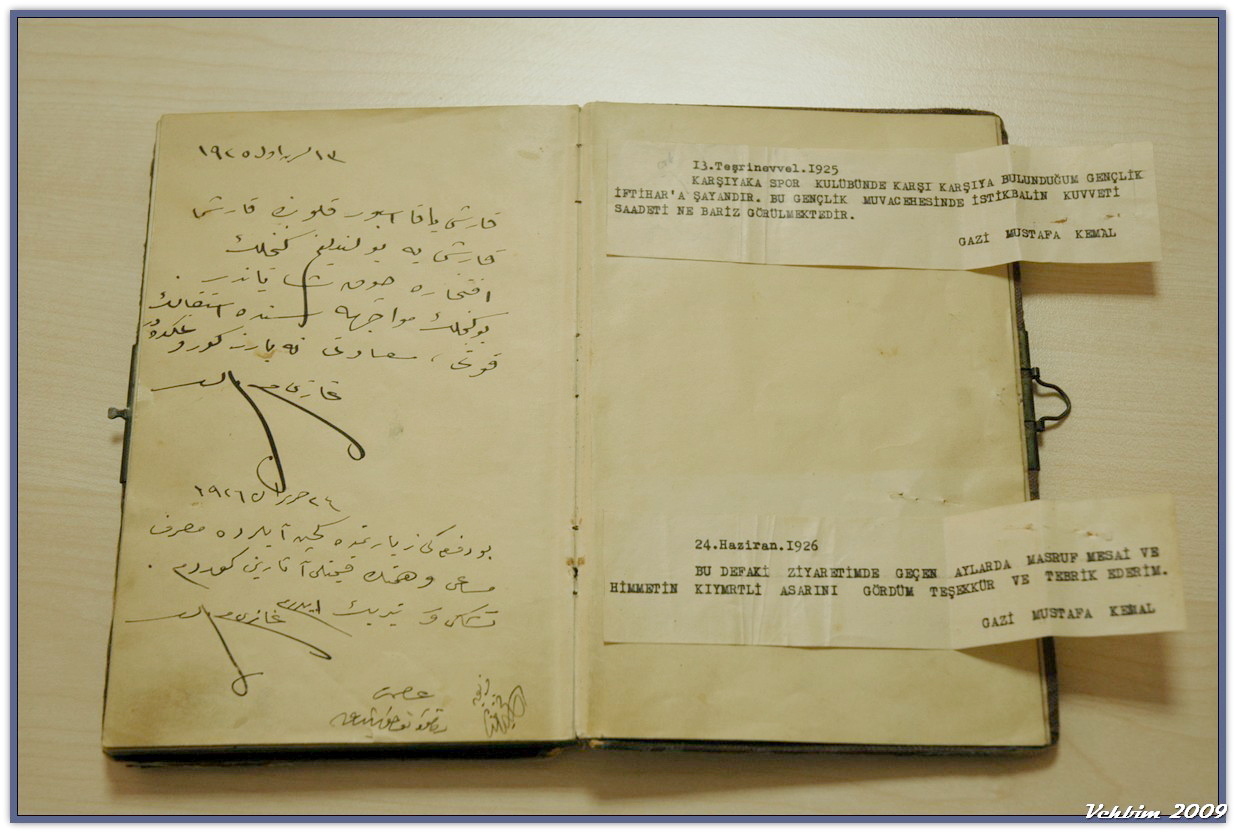 ١٣ تشرين اول ١٩٢٥
قارشى ياقا سپور قلوبنده قارشى
قارشى يه بولنديغم كنجلك
افتخاره شاياندر .
بوكنجلك مواجهه سنده استقبالك
قوتى ، سعادتى نه بارز كورو
غازى م كمال
٢٤ حزيران ١٩٢٦
بو دفعه كى زيارتمده كچن آيلرده مصروف
مساعى و همتك قيمتلى آثارينى كوردم .
تشكر و تبريك ايدرم غازى م كمال
عصمت
13.Teşrinevvel.1925
KARŞIYAKA SPOR KULÜBÜNDE KARŞI KARŞIYA BULUNDUĞUM GENÇLİK
İFTİHAR'A ŞAYANDIR. BU GENÇLİK MUVACEHESİNDE İSTİKBALİN KUVVETİ
SAADETİ NE BARİZ GÖRÜLMEKTEDİR.
GAZİ MUSTAFA KEMAL
24.Haziran.1926
BU DEFAKİ ZİYARETİMDE GEÇEN AYLARDA MASRUF MESAİ VE
HİMMETİN KIYMRTLİ ASARINI GÖRDÜM TEŞEKKÜR VE TEBRİK EDERİM.
GAZİ MUSTAFA KEMAL
Vehbim 2009